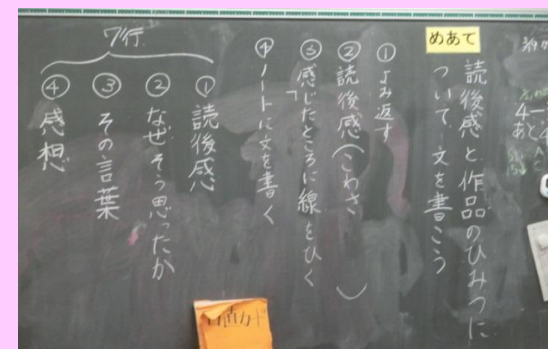 めあて
読後感と作品のひみつに
ついて文を書こう
①よみ返す
②読後感(こわさ　　)
③「感じたところに線をひく
④ノートに文を書く
7行
①読後感
②なぜそう思ったか
③その言葉
④感想